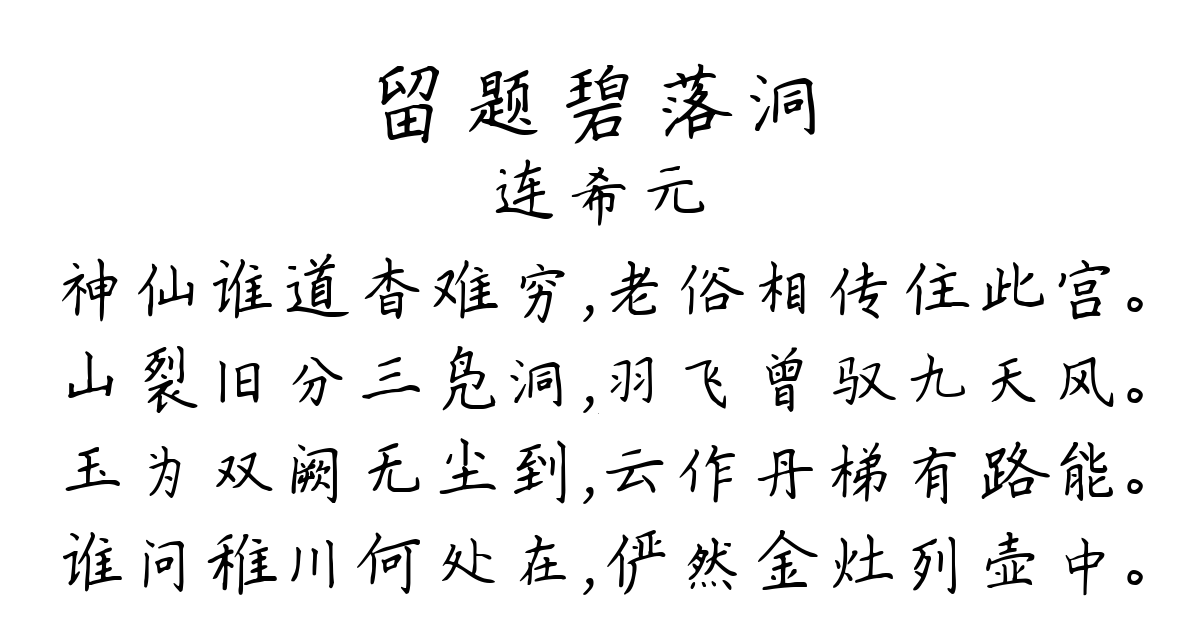 留题碧落洞
连希元
神仙谁道杳难穷,老俗相传住此宫。
山裂旧分三凫洞,羽飞曾驭九天风。
玉为双阙无尘到,云作丹梯有路能。
谁问稚川何处在,俨然金灶列壶中。